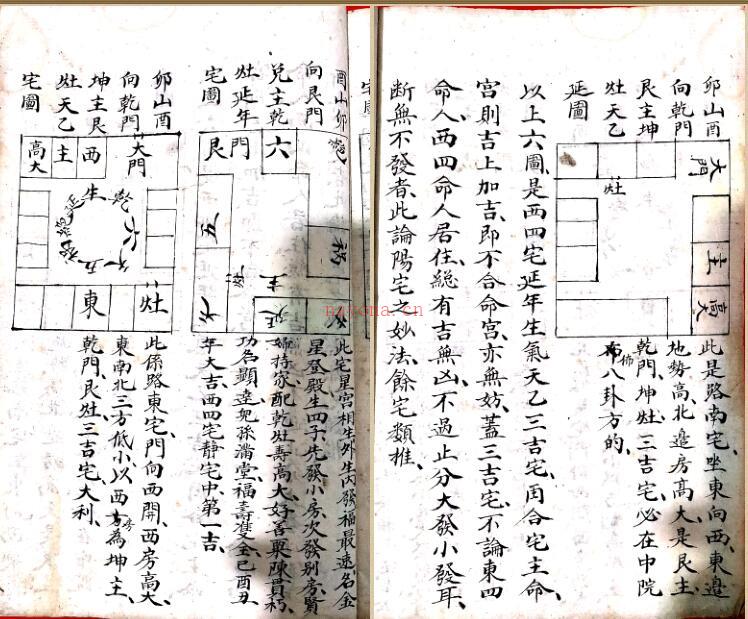 卯山酉
向乾門
艮主坤
灶天乙
延圖
大門
灶
主
高大
此是路南宅坐東向西東邉
地勢高北邉房髙大是艮主
乾門坤灶三吉宅必在中院
佈八卦方的
以上六圖是西四宅延年生氣天乙三吉宅再合宅主命
宮則吉上加吉即不合命宮亦無妨蓋三吉宅不論東四
命人西四命人居住縂有吉無凶不過止分大發小發耳
断無不發者此論陽宅之妙法餘宅類推
酉山卯
向艮門
兌主乾
灶延年
宅圖
六
艮門
五
禍
主
延
此宅星宫相生外生内發福最速名金
星登殿生四子先發小房次發别房賢
婦持家配乾灶壽髙大好善粟陳貫朽
功名顯達兒孫滿堂福壽雙全巳酉丑
年大吉西四宅静宅中第一吉
卯山酉
向乾門
坤主艮
灶天乙
宅圖
大門
西
主
高大
生
延
禍
絶
五
六
灶
東
此係路東宅門向西開西房髙大
東南北三方低小以西方房為坤主
乾門艮灶三吉宅大利
nayona.cn